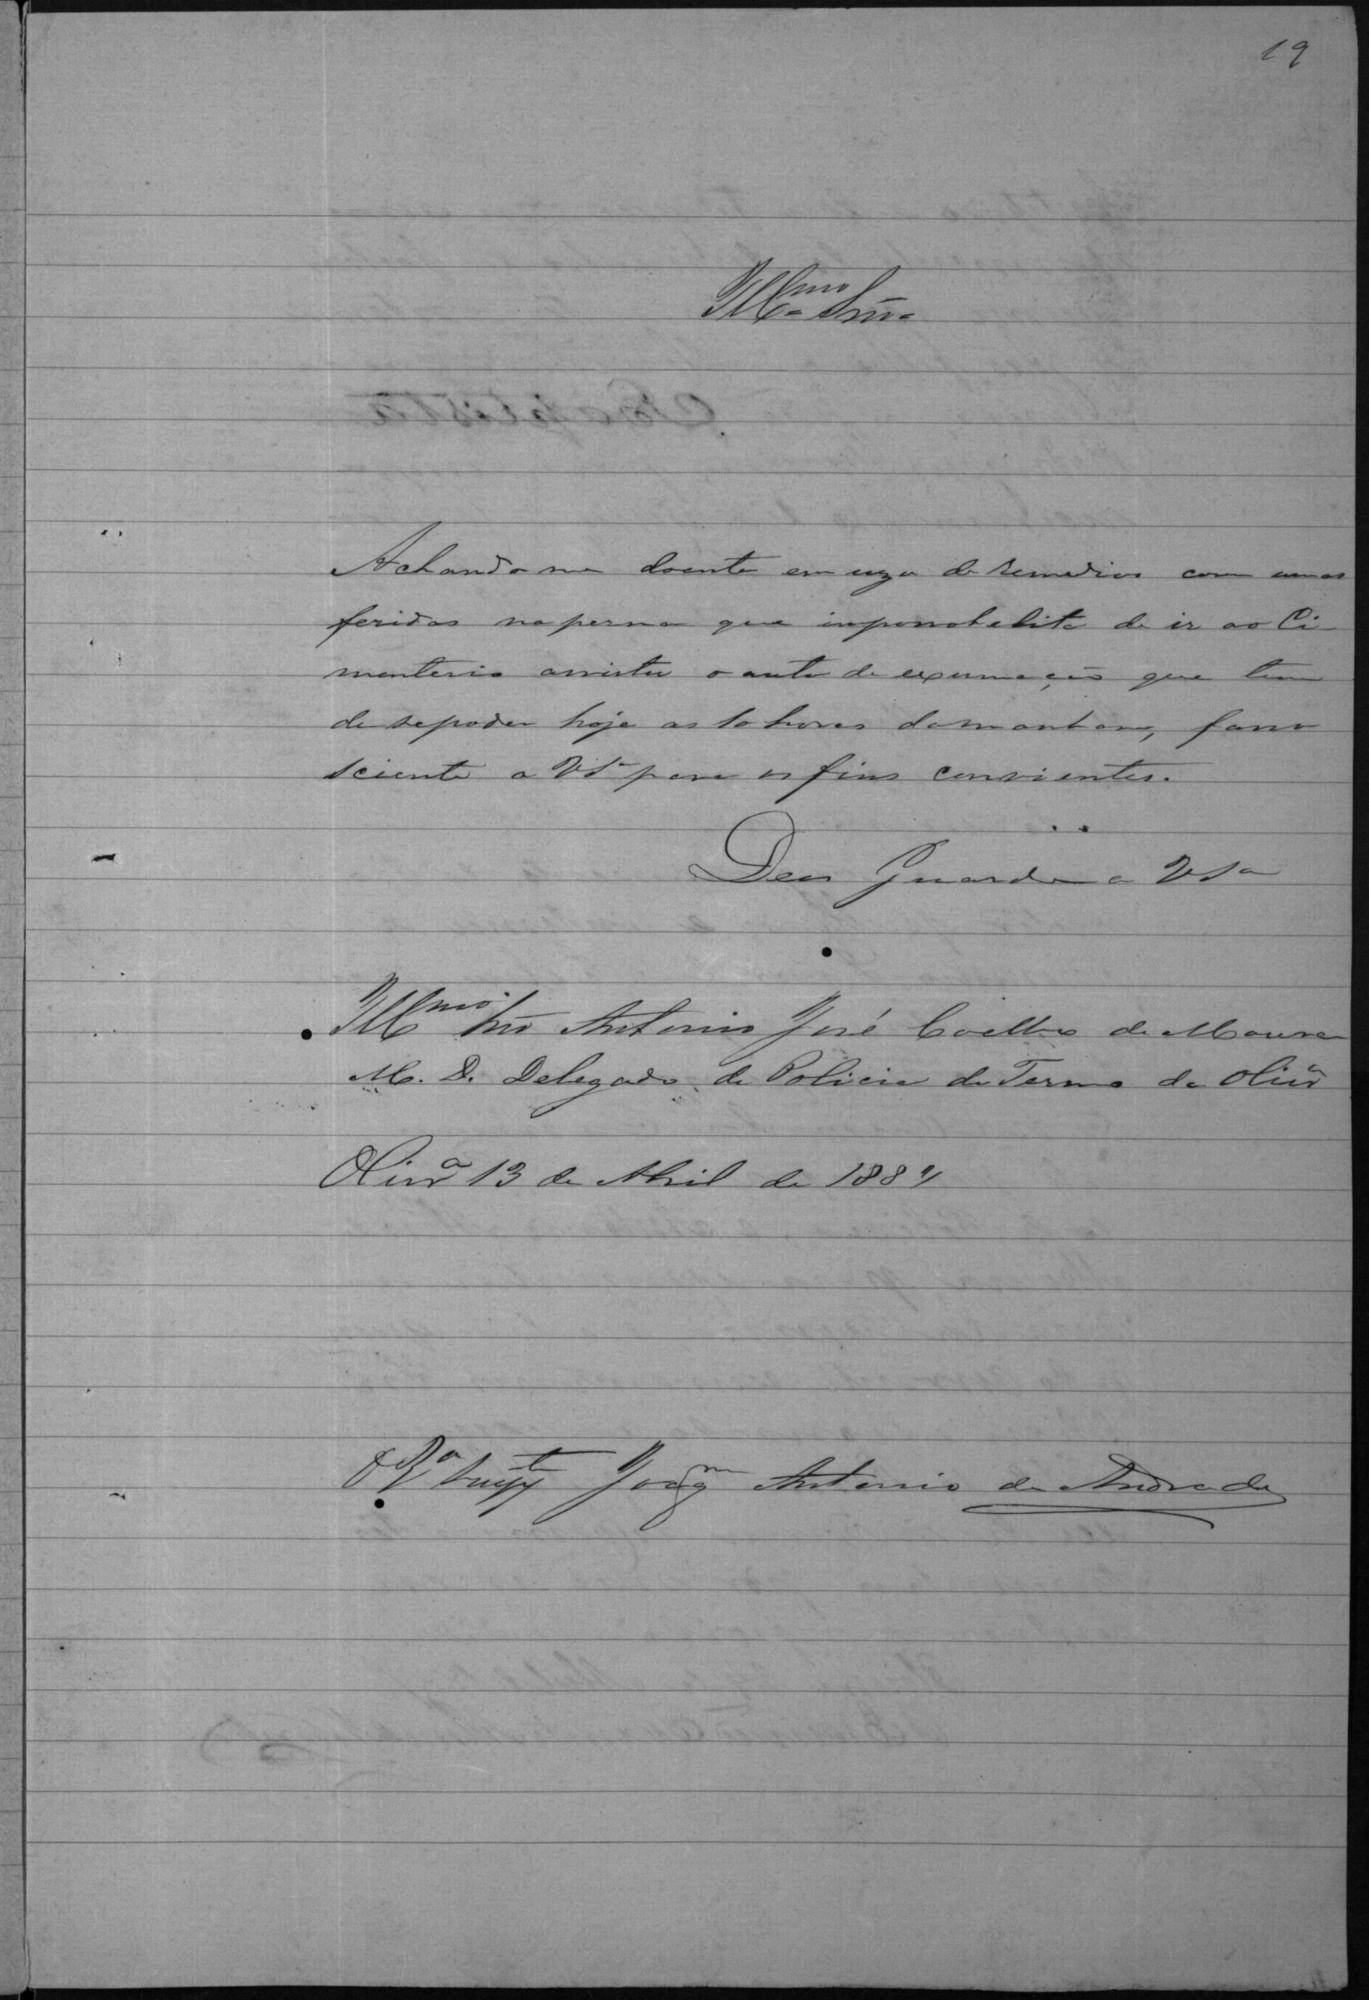 19
Illmo Snr.
Achando me doente em uzo de remedios com umas
feridas na perna que imposebelita de ir ao Ci-
menterio assistir o auto de exumação que tem
de se poder hoje as 10 horas da manham, faço
sciente a VSa para os fins convientes.
Deus Guarde a VSa
Illmo Snr Antonio José Coelho de Moura
M. D. Delegado de Policia do Termo da Olivra
Olivra 13 de Abril de 1884
Joaqm Antonio de Andrade